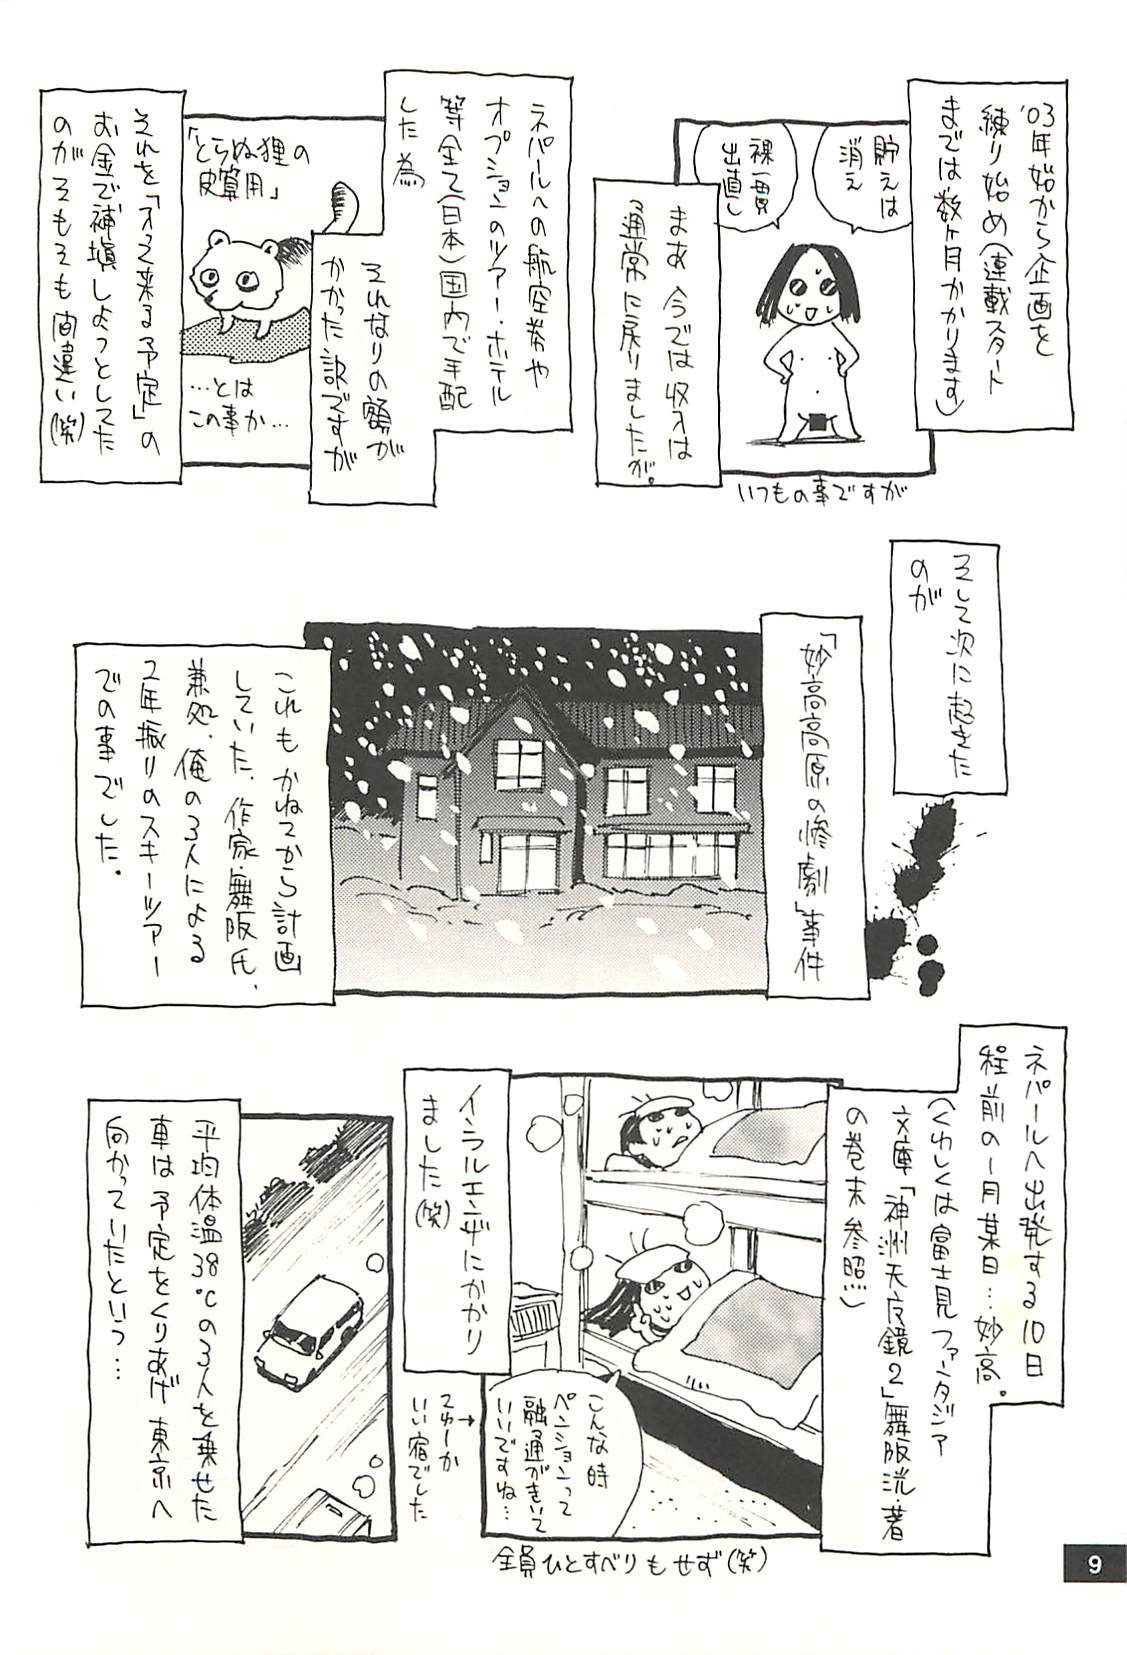 '03年始から企画を
練り始め(連載スタート
までは数ヶ月かかります)
貯えは
消え
裸一貫
出直し
まあ 今では収入は
通常に戻りましたが。
いつもの事ですが
ネパールへの航空券や
オプションのツアー・ホテル
等全て(日本)国内で手配
した為
それなりの額が
かかった訳ですが
「とらぬ狸の
皮算用」
…とは
この事か…
それを「入って来る予定」の
お金で補填しようとしてた
のがそもそも間違い(笑)
そして次に起きた
のが
「妙高高原の惨劇」事件
これもかねてから計画
していた、作家・舞阪氏、
兼処、俺の3人による
2年振りのスキーツアー
での事でした.
ネパールへ出発する10日
程前の1月某日…妙高。
(くわしくは富士見ファンタジア
文庫「神州天魔鏡2」舞阪洸・著
の巻末参照)
インフルエンザにかかり
ました(笑)
こんな時
ペンションって
融通がきいて
いいですね…
てゆーか
いい宿でした
全員ひとすべりもせず(笑)
平均体温38℃の3人を乗せた
車は予定をくりあげ東京へ
向かっていたという…
9